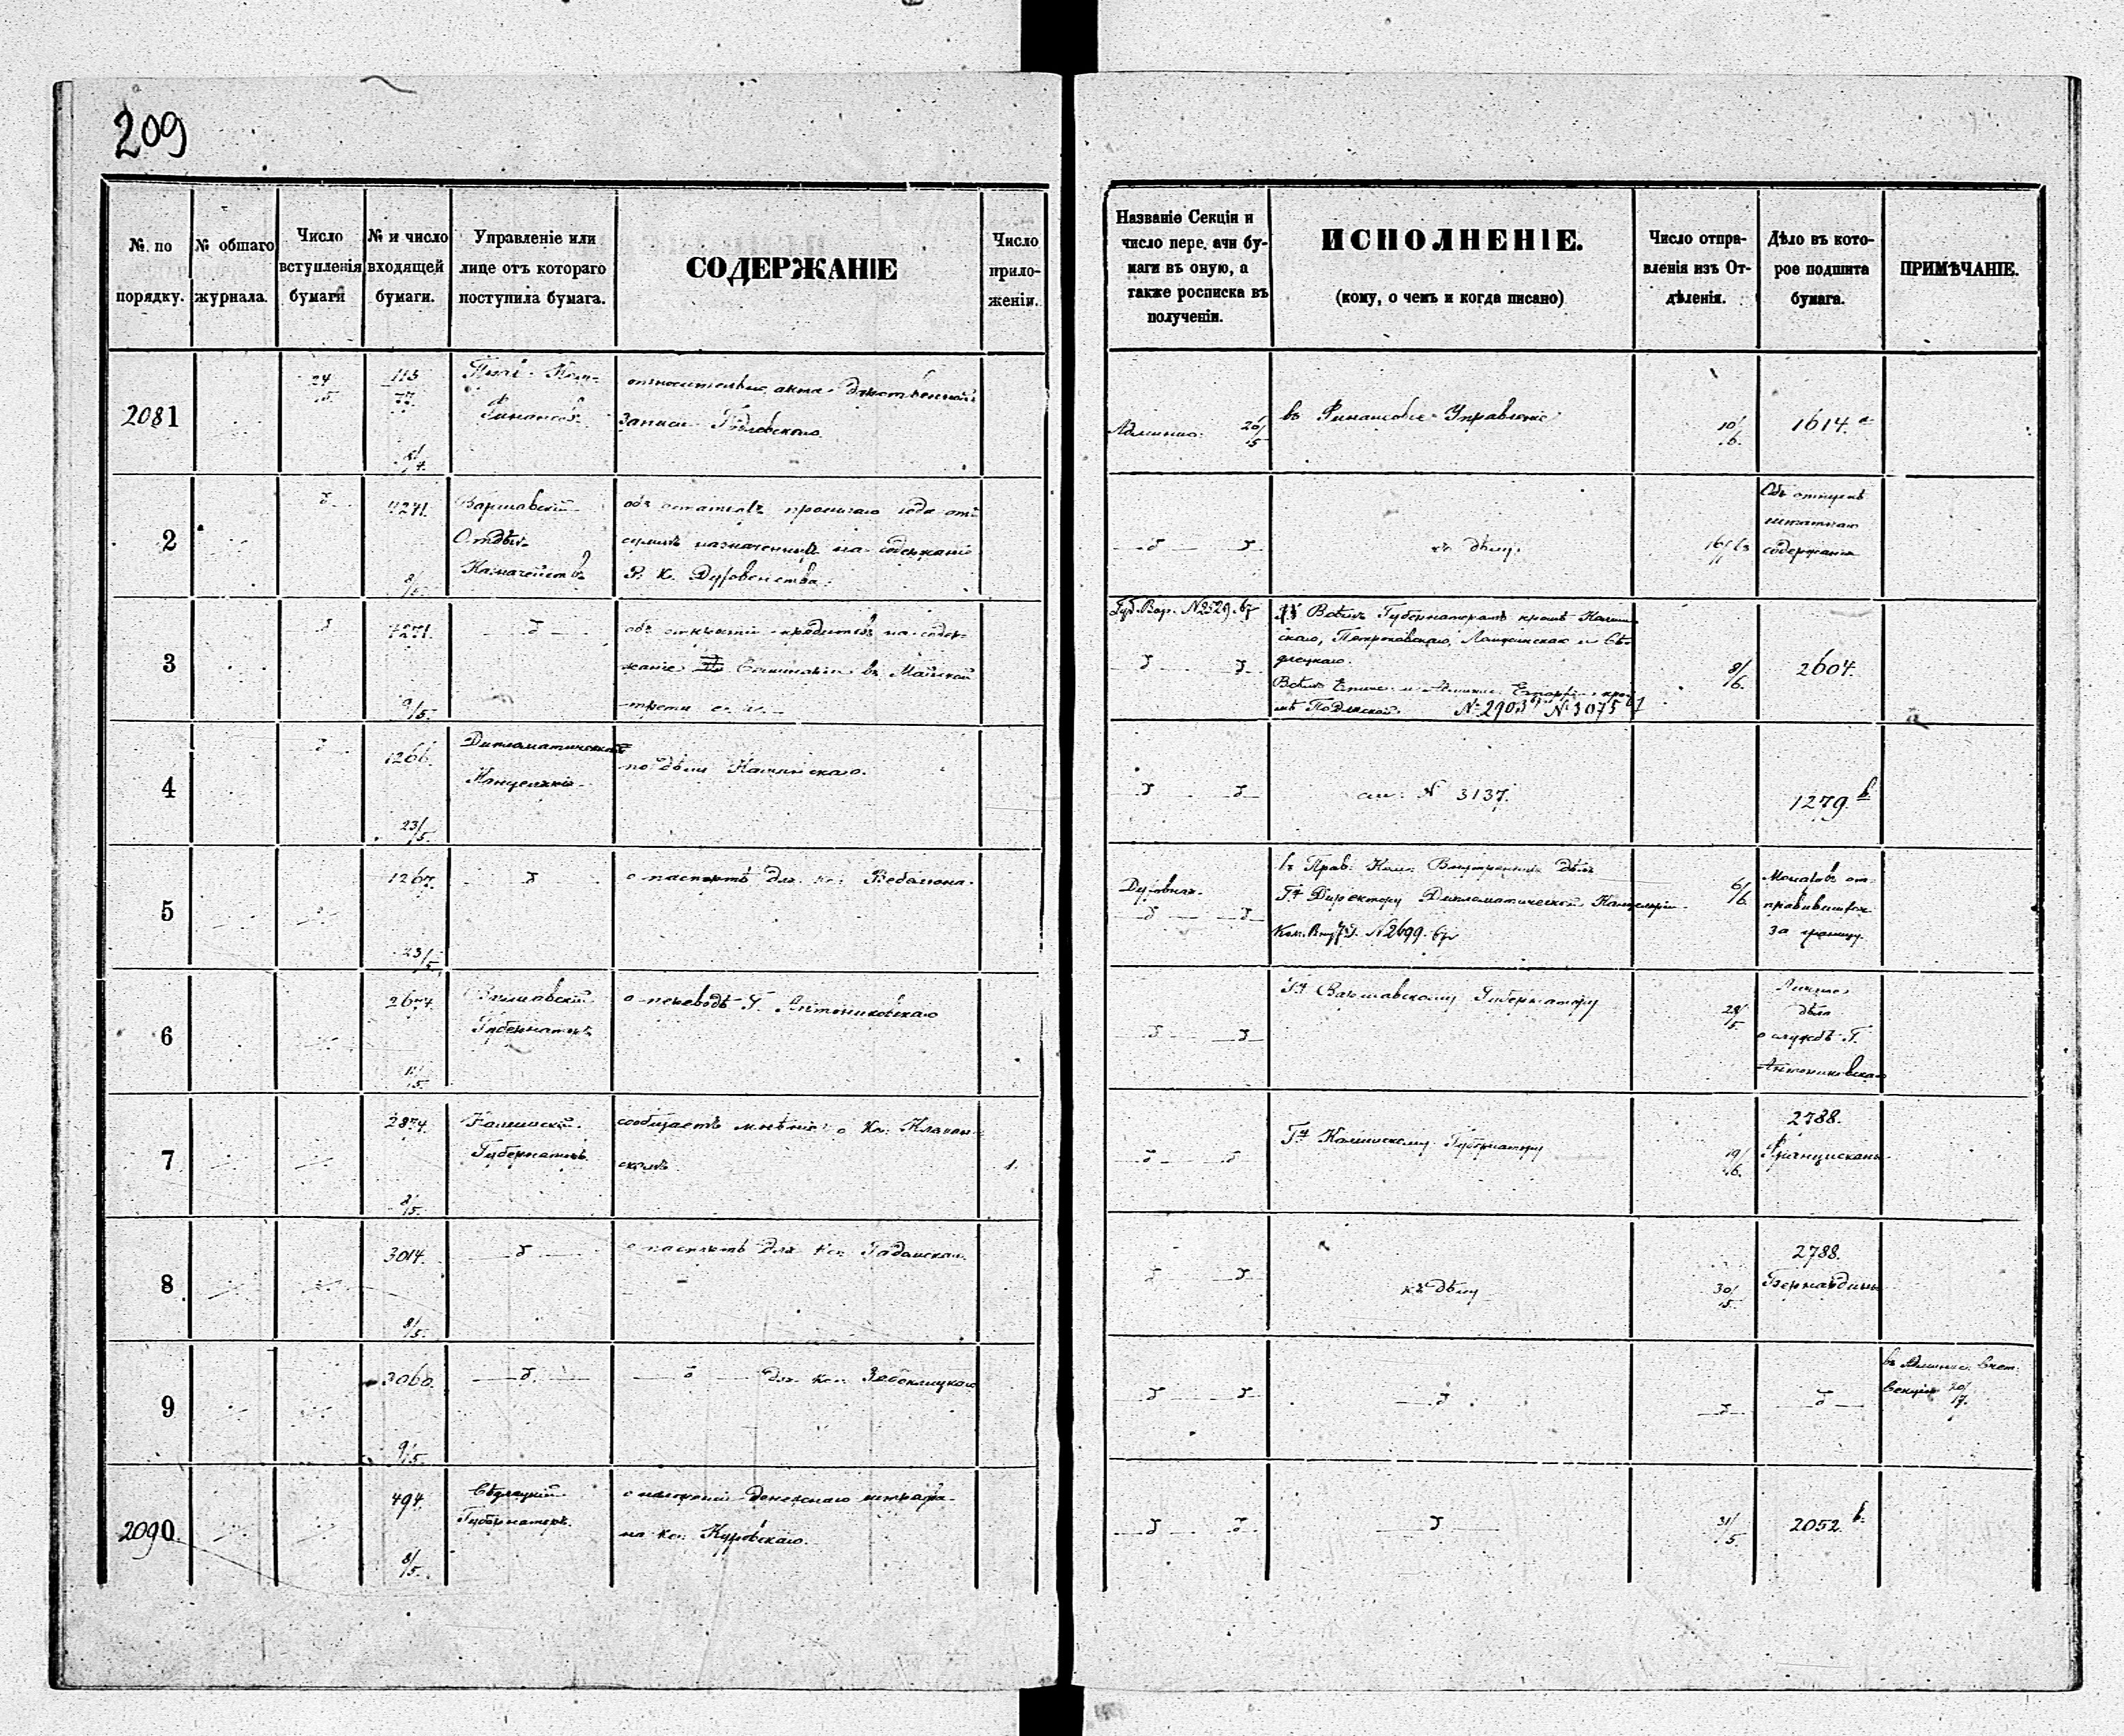 209
№. по порядку.
№ общаго журнала.
Число вступленія бумаги
№ и число входящей бумаги.
Управленіе или лице отъ котораго поступила бумага.
СОДЕРЖАНІЕ
Число приложеніи.
Названіе Секціи и число пере. ачи бумаги въ оную, а также росписка въ полученіи.
ИСПОЛНЕНІЕ.
(кому, о чемъ и когда писано)
Число отправленія изъ Отдѣленія.
Дѣло въ которое подшита бумага.
ПРИМѢЧАНІЕ.
2081
Финансов.
относительно акта
записи
Админис. 20/15
въ Финансовое Управленіе
10/6.
1614. а
2
4271.
Варшавскій
Отдѣл.
Казначейства
объ остаткѣ прошлаго года отъ
суммъ назначенныхъ на содержаніе
Р. К. Духовенства.
къ дѣлу.
Объ отпускѣ
штатнаго
содержанія
3
4271.
9/5.
объ открытіи кредитовъ на содержаніе
Семинаріи въ Майской
трети с. г.
Губ. Вар. №2529. 67
Всѣмъ Губернаторамъ кромѣ Калишскаго, Петроковскаго, Ломжинскаго и Сѣдлецкаго.
Всѣмъ Епис. и Админис. Епархіи кромѣ Подляской. № 2903 № 3075 67
8/6.
2604.
4
1266.
23/5.
Дипломатическая
Канцелярія
по дѣлу Калинскаго.
см. № 3137.
1279. b
5
1267.
23/5.
о паспортѣ для кс.
Духовная.
въ Прав. Ком. Внутреннихъ Дѣлъ
Гну Директору Дипломатической Канцеляріи
Ком. Вну. Д. №2699. 67
6/6.
Монаховъ отправившихся
за границу.
6
2674.
11/5.
Варшавскій
Губернаторъ
о переводѣ Г. Антониковскаго
Гну Варшавскому Губернатору
29/5.
Личное
дѣло
о службѣ Г.
Антониковскаго
7
2874.
2/5.
Калишскій
Губернаторъ.
сообщаетъ мнѣніе о Кс.
1.
Гну Калишскому Губернатору
19/6.
2788.
Францискане
8
3014.
8/5.
о паспортѣ для кс. Гадомскаго.
къ дѣлу
30/5.
2788.
Бернардины
9
3060.
9/5.
для кс. Забеклицкаго
въ Админис. Счет.
Секцію 20/17.
2090.
494.
8/5.
Сѣдлецкій
Губернаторъ.
о наложеніи денежнаго штрафа
на кс. Куровскаго.
31/5.
2052. b.